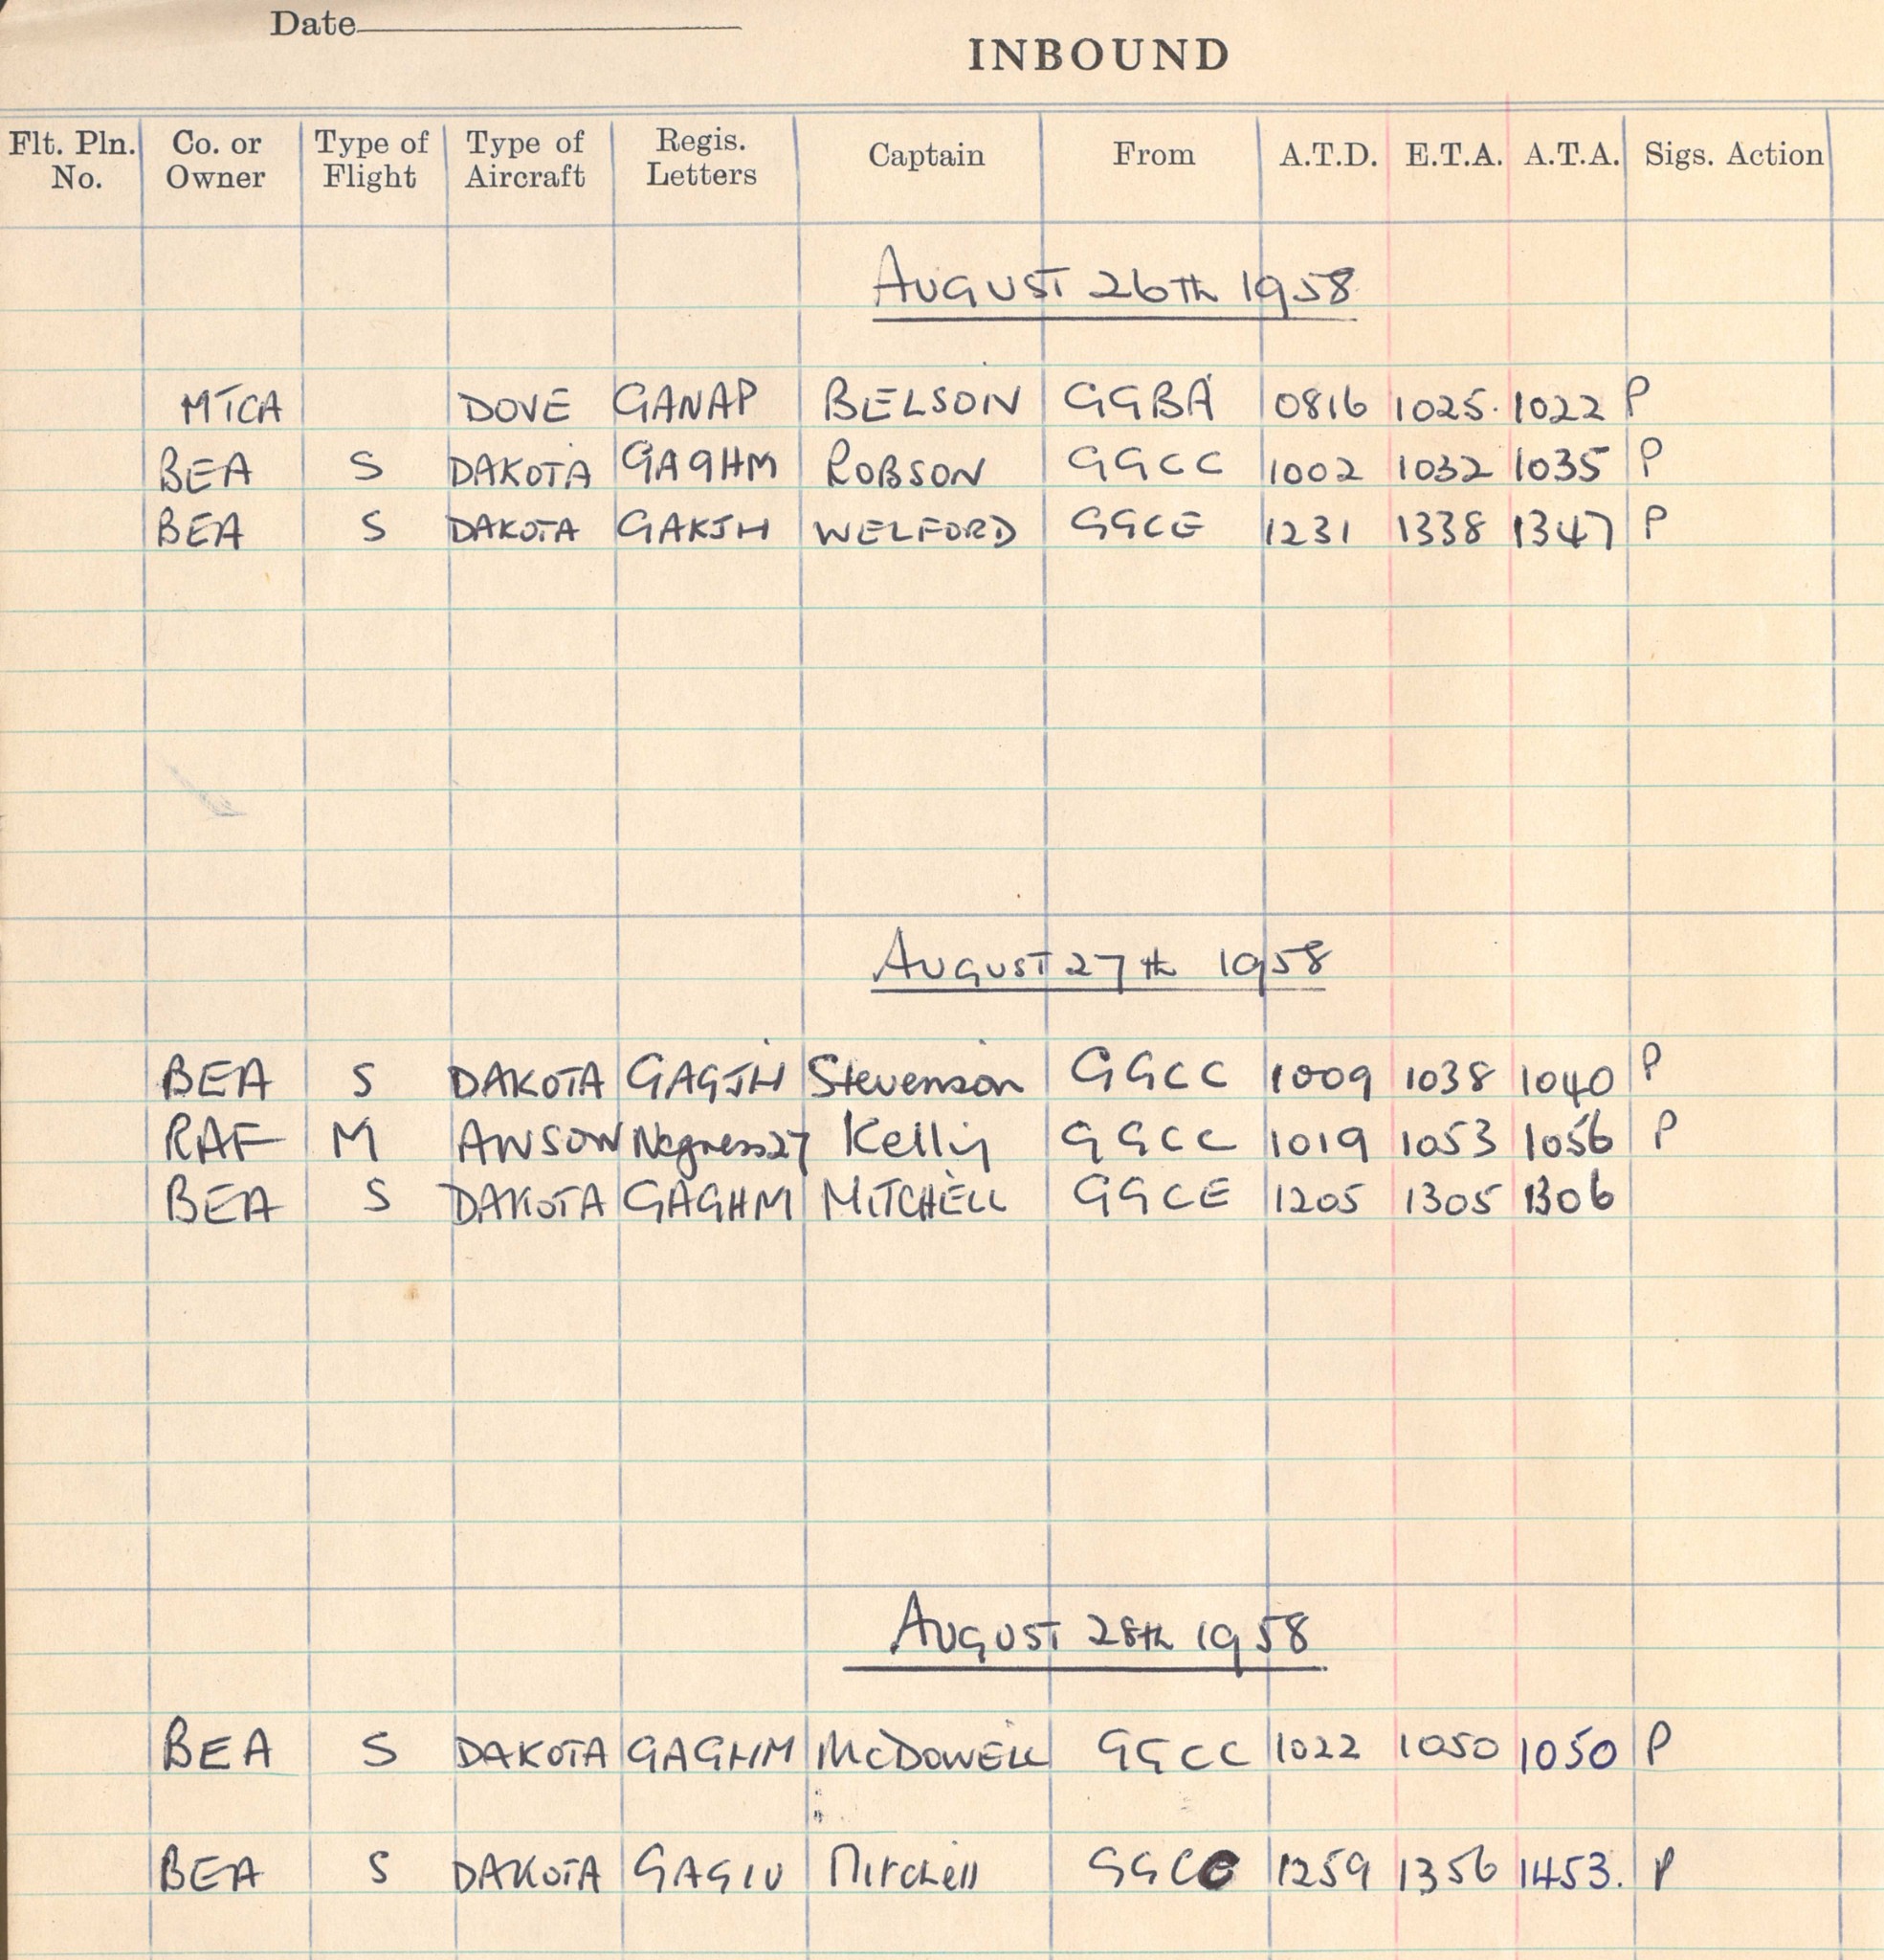 Date
INBOUND
Flt. Pln. No. Co. or Owner Type of Flight Type of Aircraft Regis. Letters Captain From A.T.D. E.T.A. A.T.A. Sigs. Action
AUGUST 26TH 1958
MTCA DOVE GANAP BELSON GGBA 0816 1025. 1022 P
BEA S DAKOTA GAGHM ROBSON GGCC 1002 1032 1035 P
BEA S DAKOTA GAKJH WELFORD GGCE 1231 1338 1347 P
AUGUST 27th 1958
BEA S DAKOTA GAGJH Stevenson GGCC 1009 1038 1040 P
RAF M ANSON Kelly GGCC 1019 1053 1056 P
BEA S DAKOTA GAGHM MITCHELL GGCE 1205 1305 1306
AUGUST 28th 1958
BEA S DAKOTA GAGHM McDOWELL GGCC 1022 1050 1050 P
BEA S DAKOTA GAGIU Mitchell 1259 1356 1453. P